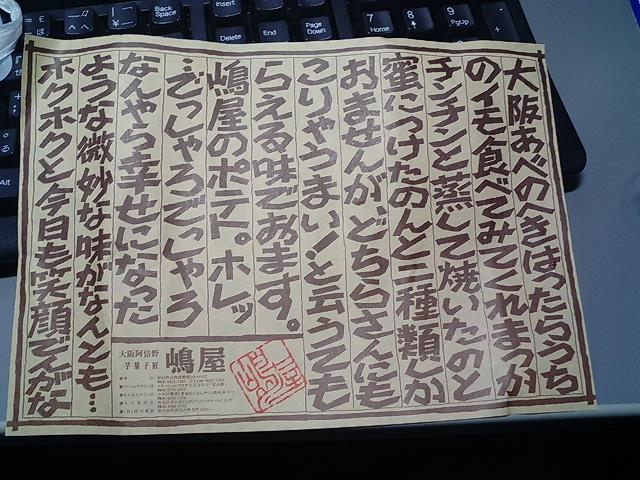 大阪あべのへきはったらうち
のイモ食べてみてくれまっか
チンチンと蒸して焼いたのと
蜜につけたのんと二種類しか
おませんが、どちらさんにも
こりゃうまい!と云うても
らえる味でおます。
嶋屋のポテト。ホレッ
…でっしゃろでっしゃろ
なんやら幸せになった
ような微妙な味がなんとも…
ホクホクと今日も笑顔でんがな
大阪阿倍野
芋菓子匠
嶋屋
Back Space
Insert
Delete
End
Page Down
7 Home
8
9 PgUp
Alt